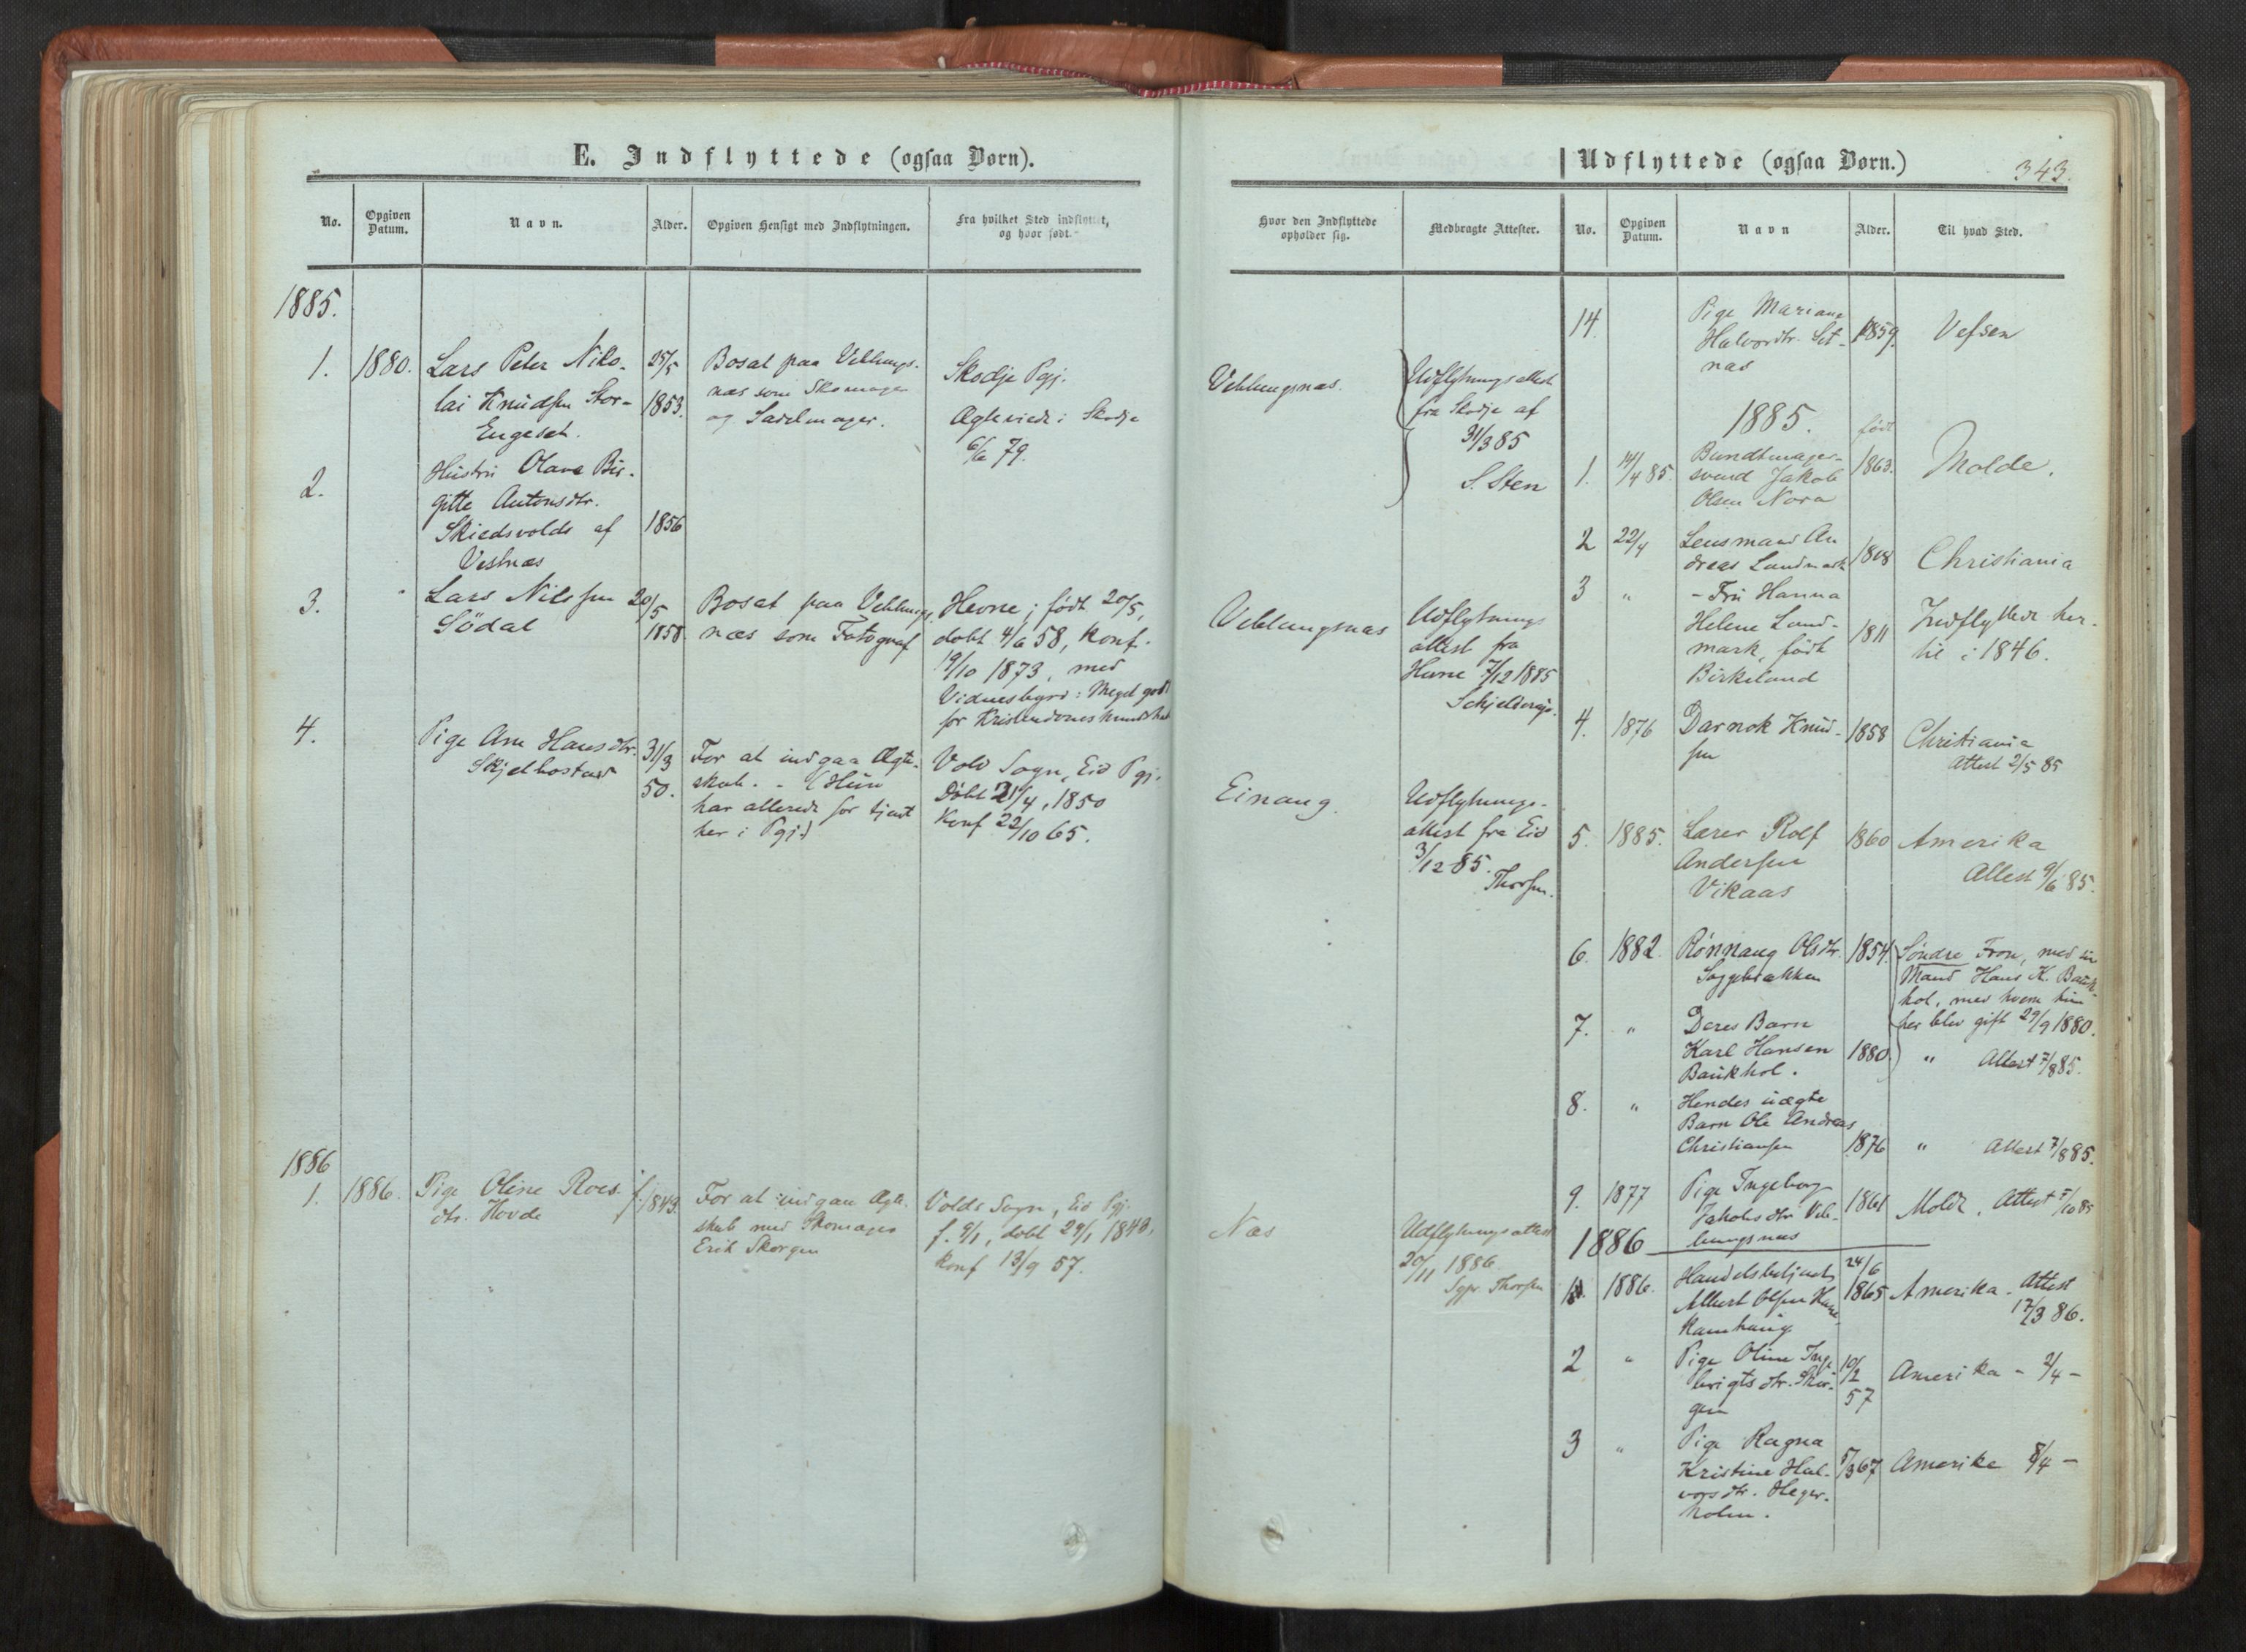 E. Indflyttede (ogsaa Børn).
No.
Opgiven
Datum.
Navn.
Alder.
Opgiven Hensigt med Indflytningen.
Fra hvilket Sted indflyttet,
og hvor født.
1885.
1.
1880.
Lars Peter Niko-
lai Knudsen Stor-
Engeset.
25/5
1853.
Bosat paa Veblungs-
næs som Skomager
og Sadelmager.
Skodje Pgj.
Ægteviede i Skodje
6/6 79.
2.
Hustru Olava Bir-
gitte Antonsdtr.
Skiedsvolds af
Vestnæs
1856
3.
Lars Nilssen
Södal
20/5
1858
Bosat paa Veblungs-
næs som Fotograf
Hevne; født 20/5,
døbt 4/6 58, Konf.
19/10 1873, med
Vidnesbyrd: Meget godt
for Kristendomskundskab
4.
Pige Ane Hansdtr.
Skjelbostad
31/3
50.
For at indgaa Ægte-
skab. - (Hun
har allerede før tjent
her i Pgj.)
Vold Sogn, Eid Pgj.
Døbt 21/4, 1850
Konf 22/10 65.
1886
1.
1886.
Pige Oline Roes-
dtr. Hovde
f. 1843.
For at indgaa Ægte-
skab med Skomager
Erik Skorgen
Volds Sogn, Eid Pgj.
f. 9/1, døbt 29/1 1843,
konf 13/9 57.
Udflyttede (ogsaa Børn.)
343.
Hvor den Indflyttede
opholder sig.
Medbragte Attester.
No.
Opgiven
Datum.
Navn
Alder.
Til hvad Sted.
Veblungsnæs.
Udflytningsattest
fra Skodje af
31/3 85
S. Sten
Veblungsnæs
Udflytnings
attest fra
Hevne 7/12 1885
Einang.
Udflytnings-
attest fra Eid
3/12 85.
Thorsen.
Næs
Udflytningsattest
20/11 1886.
Sgpr. Thorsen
14
Pige Mariane
Halvordtr. Set-
næs
1859.
Vefsen
1885.
født
1.
14/4 85.
Bundtmager-
svend Jakob
Olsen Nora
1863.
Molde.
2
22/4
Lensmand An
dreas Landmark
1808
Christiania
3
"
- Fru Hanna
Helene Land-
mark, født
Birkeland
1811
Indflyttede her-
til i 1846.
4.
1876
Darnok Knud-
sen
1858
Christiania
Attest 2/5 85
5.
1885.
Lærer Rolf
Andersen
Vikaas
1860
Amerika
Attest 9/6 85.
6.
1882.
Rönnaug Olsdtr.
Soggebakken
1854.
Søndre Fron, med sin
Mand Hans K. Bauk-
hol, med hvem hun
her blev gift 29/9 1880.
7.
"
Deres Barn
Karl Hansen
Baukhol.
1880.
" Attest 7/8 85.
8.
"
Hendes uægte
Barn Ole Andreas
Christiansen
1876
" Attest 7/8 85.
9.
1877
Pige Ingeborg
Jakobsdtr Veb-
lungsnæs
1861
Molde, Attest 7/10 85
1886
1.
1886.
Handelsbetjent
Albert Olsen
24/6
1865
Amerika. Attest
17/3 86.
2
"
Pige Oline Inge
brigtsdtr. Skor-
gen
10/2
57
Amerika - 2/4 -
3
"
Pige Ragna
Kristine Hal-
vorsdtr. Heger-
holm.
5/3 67
Amerika 8/4 -